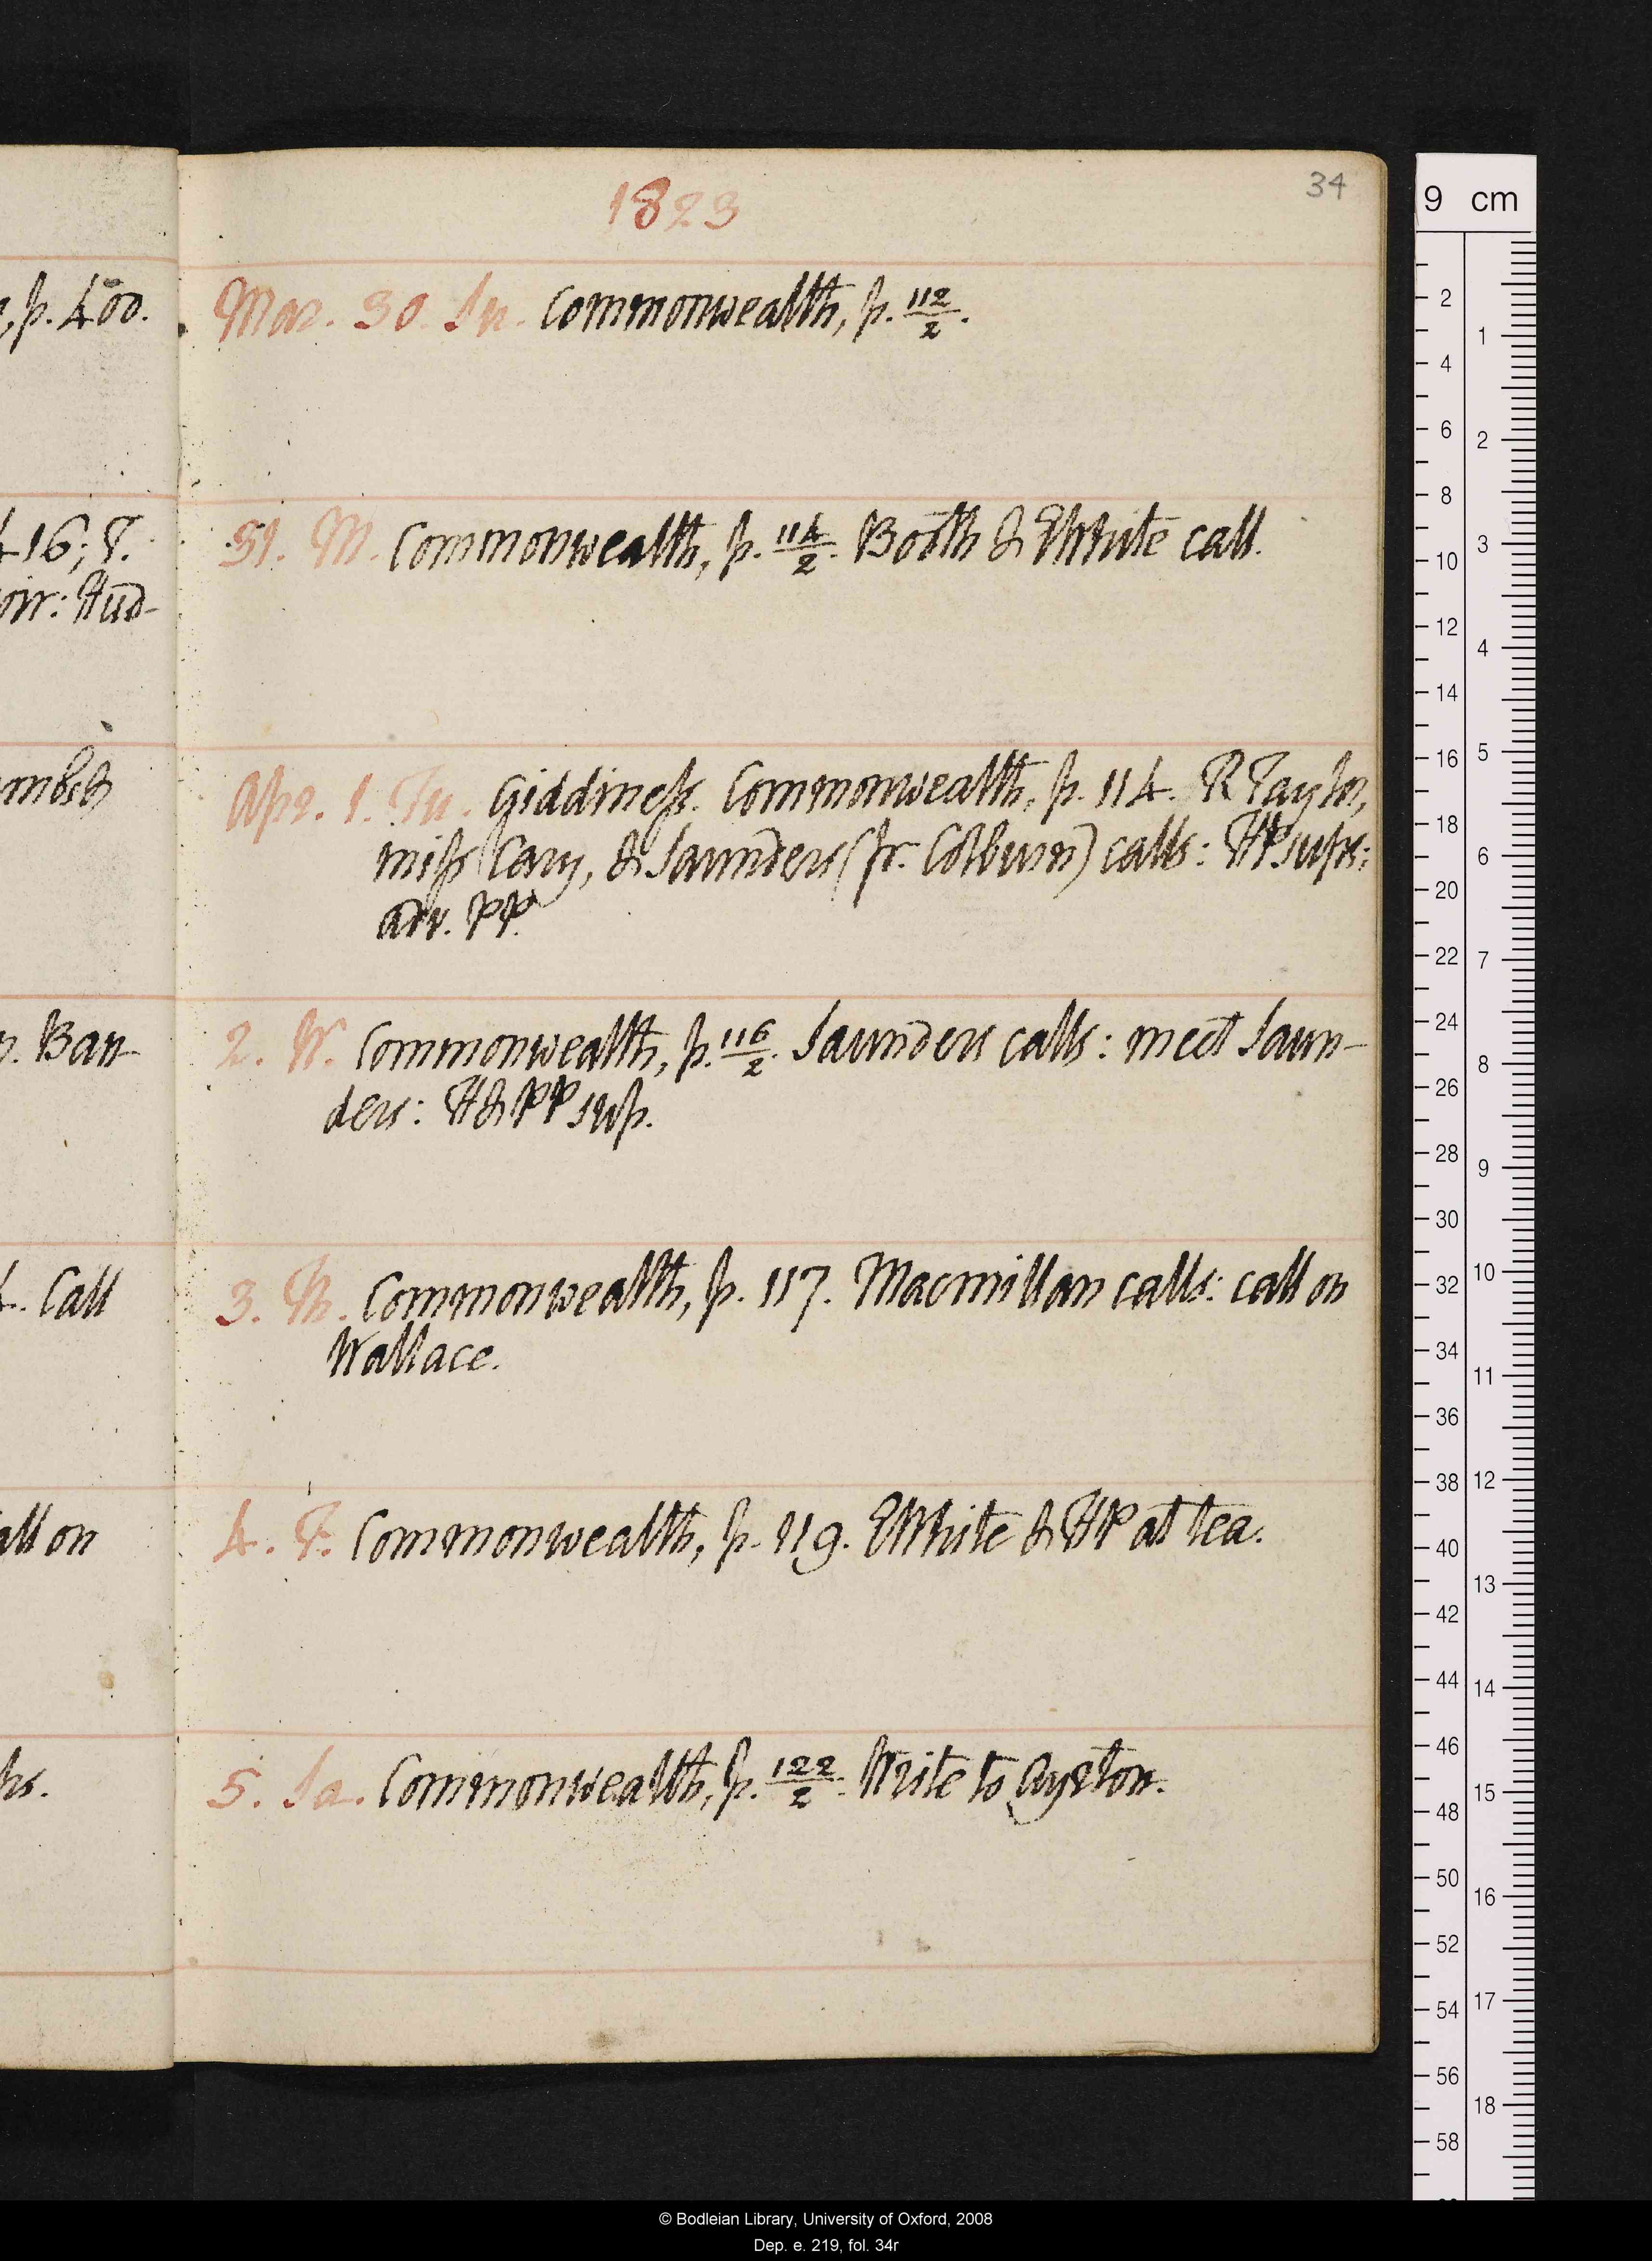 34
1823
, p. 400.
Mar. 30. Su. Commonwealth, p. 112/2.
416; T.
oir: Hud-
31. M. Commonwealth, p. 114/2. Booth & EWhite call.
Apr. 1. Tu. Giddiness. Commonwealth, p. 114. R Taylor,
miss Cary, & Saunders (fr. Colburn) calls: HP sups:
adv. PP.
Ban-
2. W. Commonwealth, p. 116/2. Saunders calls: meet Saun-
ders: H & PP sup.
Call
3. Th. Commonwealth, p. 117. Macmillan calls: call on
Wallace.
all on
4. F. Commonwealth, p. 119. EWhite & HP at tea.
5. Sa. Commonwealth, p. 122/2. Write to Ayrton.
9 cm
2
4
6
8
10
12
14
16
18
20
22
24
26
28
30
32
34
36
38
40
42
44
46
48
50
52
54
56
58
1
2
3
4
5
6
7
8
9
10
11
12
13
14
15
16
17
18
© Bodleian Library, University of Oxford, 2008
Dep. e. 219, fol. 34r